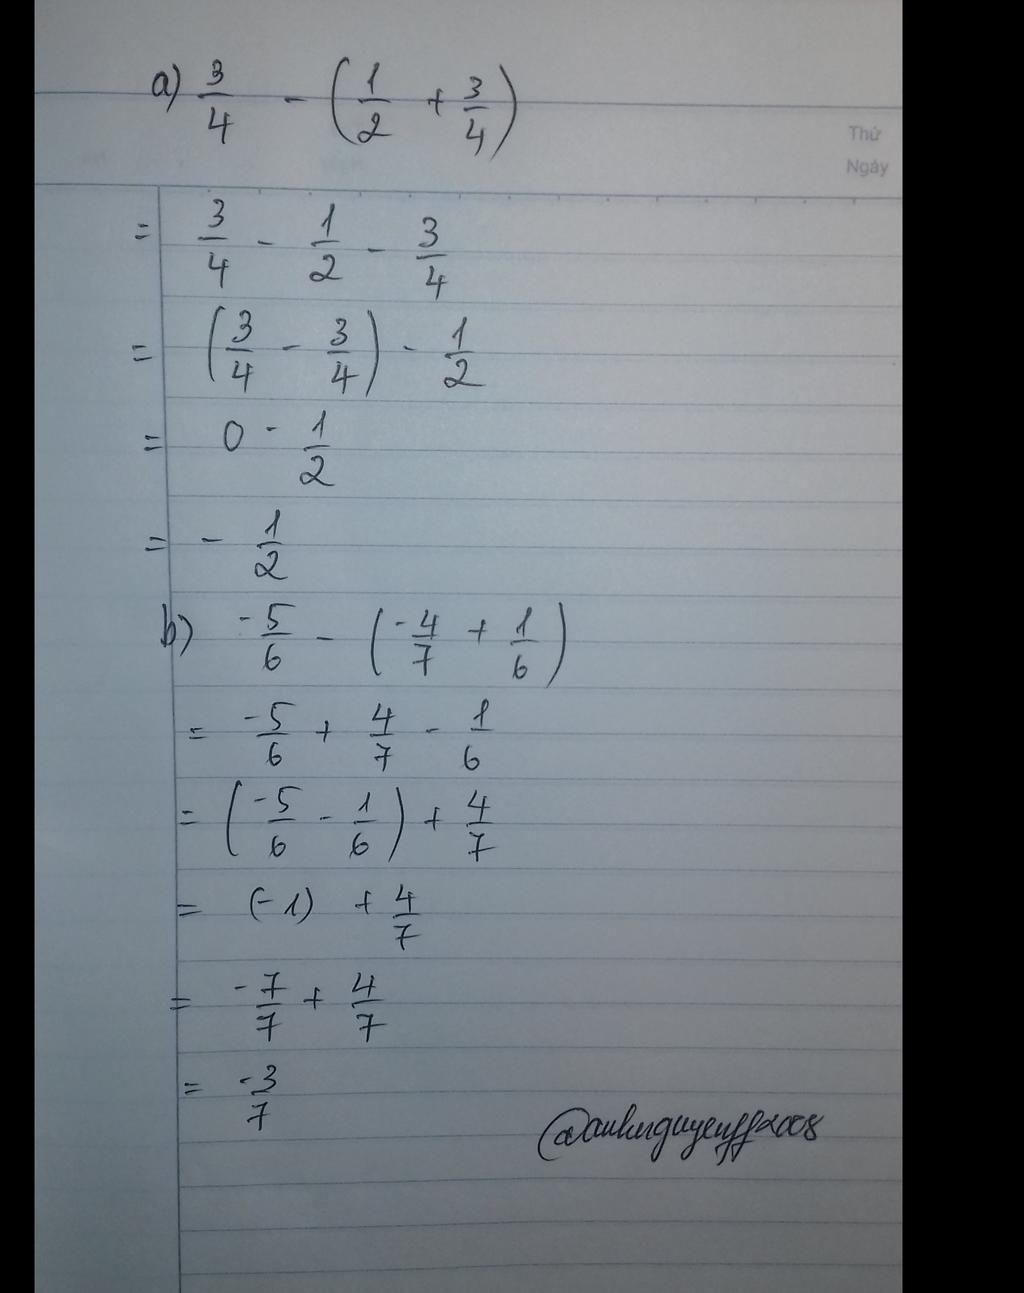 a) 3/4 - (1/2 + 3/4)
Thứ
Ngày
= 3/4 - 1/2 - 3/4
= (3/4 - 3/4) - 1/2
= 0 - 1/2
= - 1/2
b) -5/6 - (-4/7 + 1/6)
= -5/6 + 4/7 - 1/6
= (-5/6 - 1/6) + 4/7
= (-1) + 4/7
= -7/7 + 4/7
= -3/7